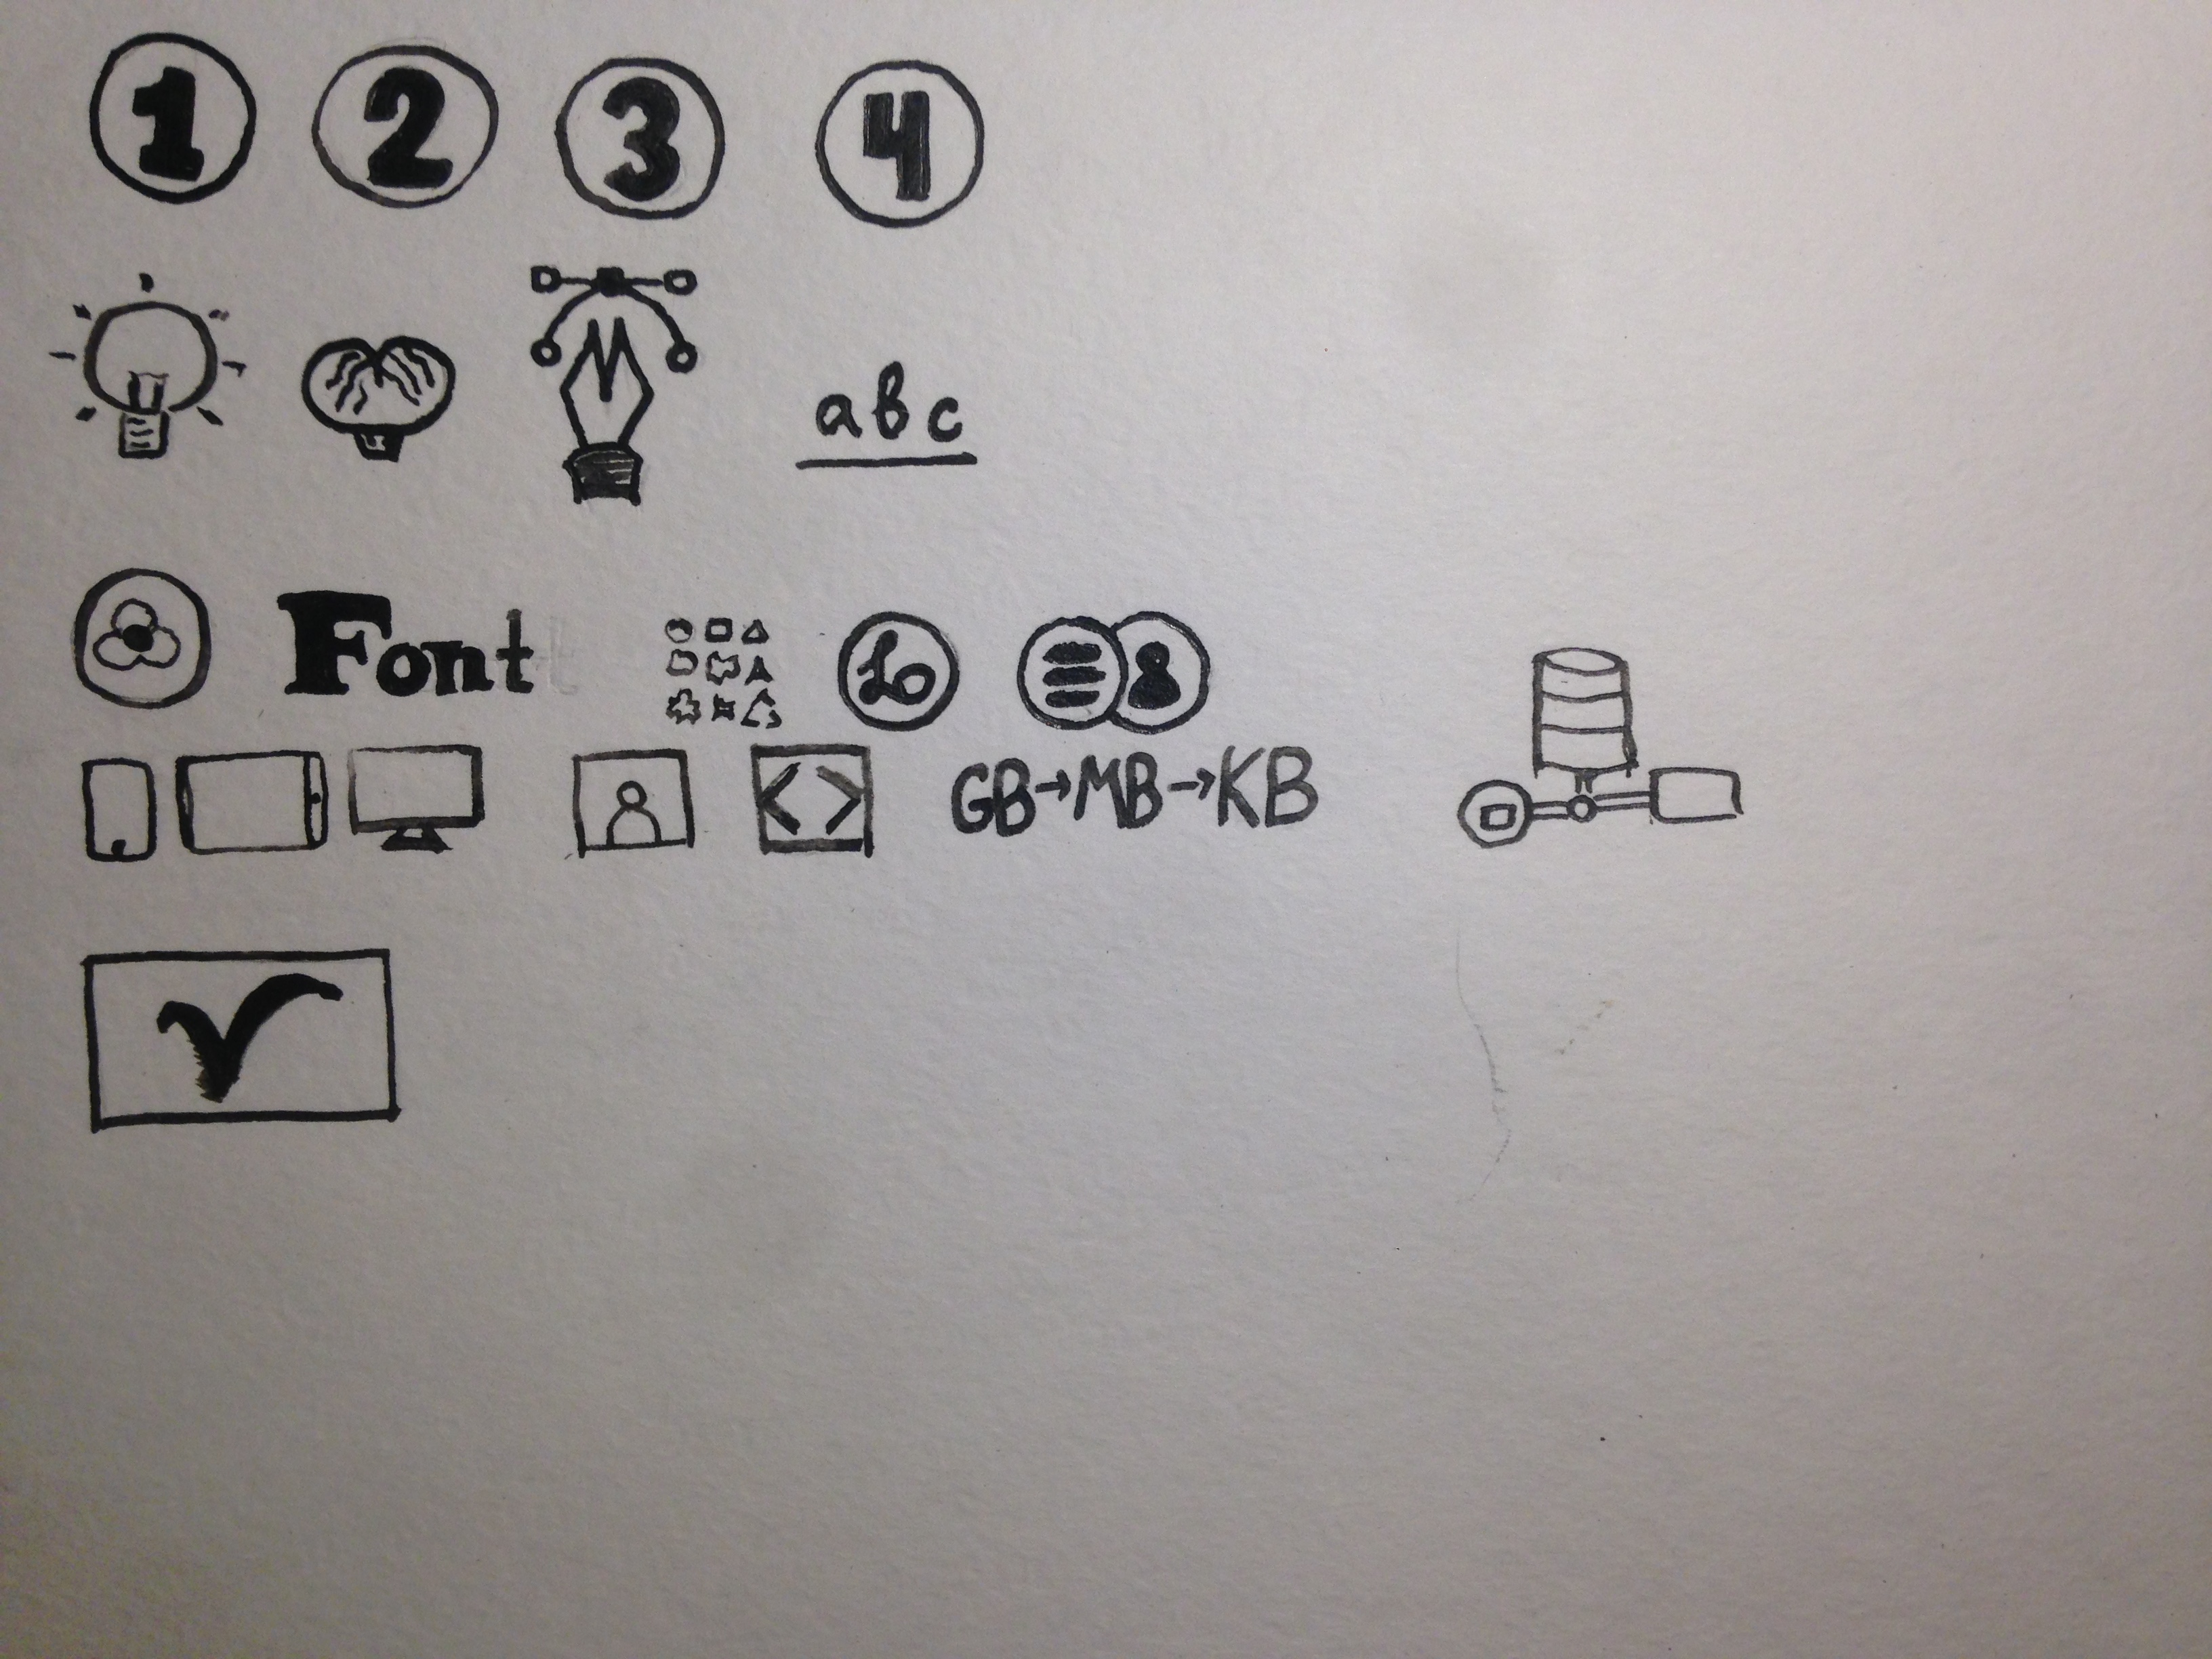 1 2 3 4
abc
Font
GB→MB→KB